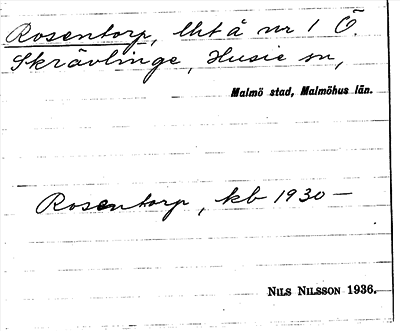 Rosentorp, lht å nr 1 Ö.
Skrävlinge, Husie sn,
Malmö stad, Malmöhus län.
Rosentorp, kb 1930 —
NILS NILSSON 1936.